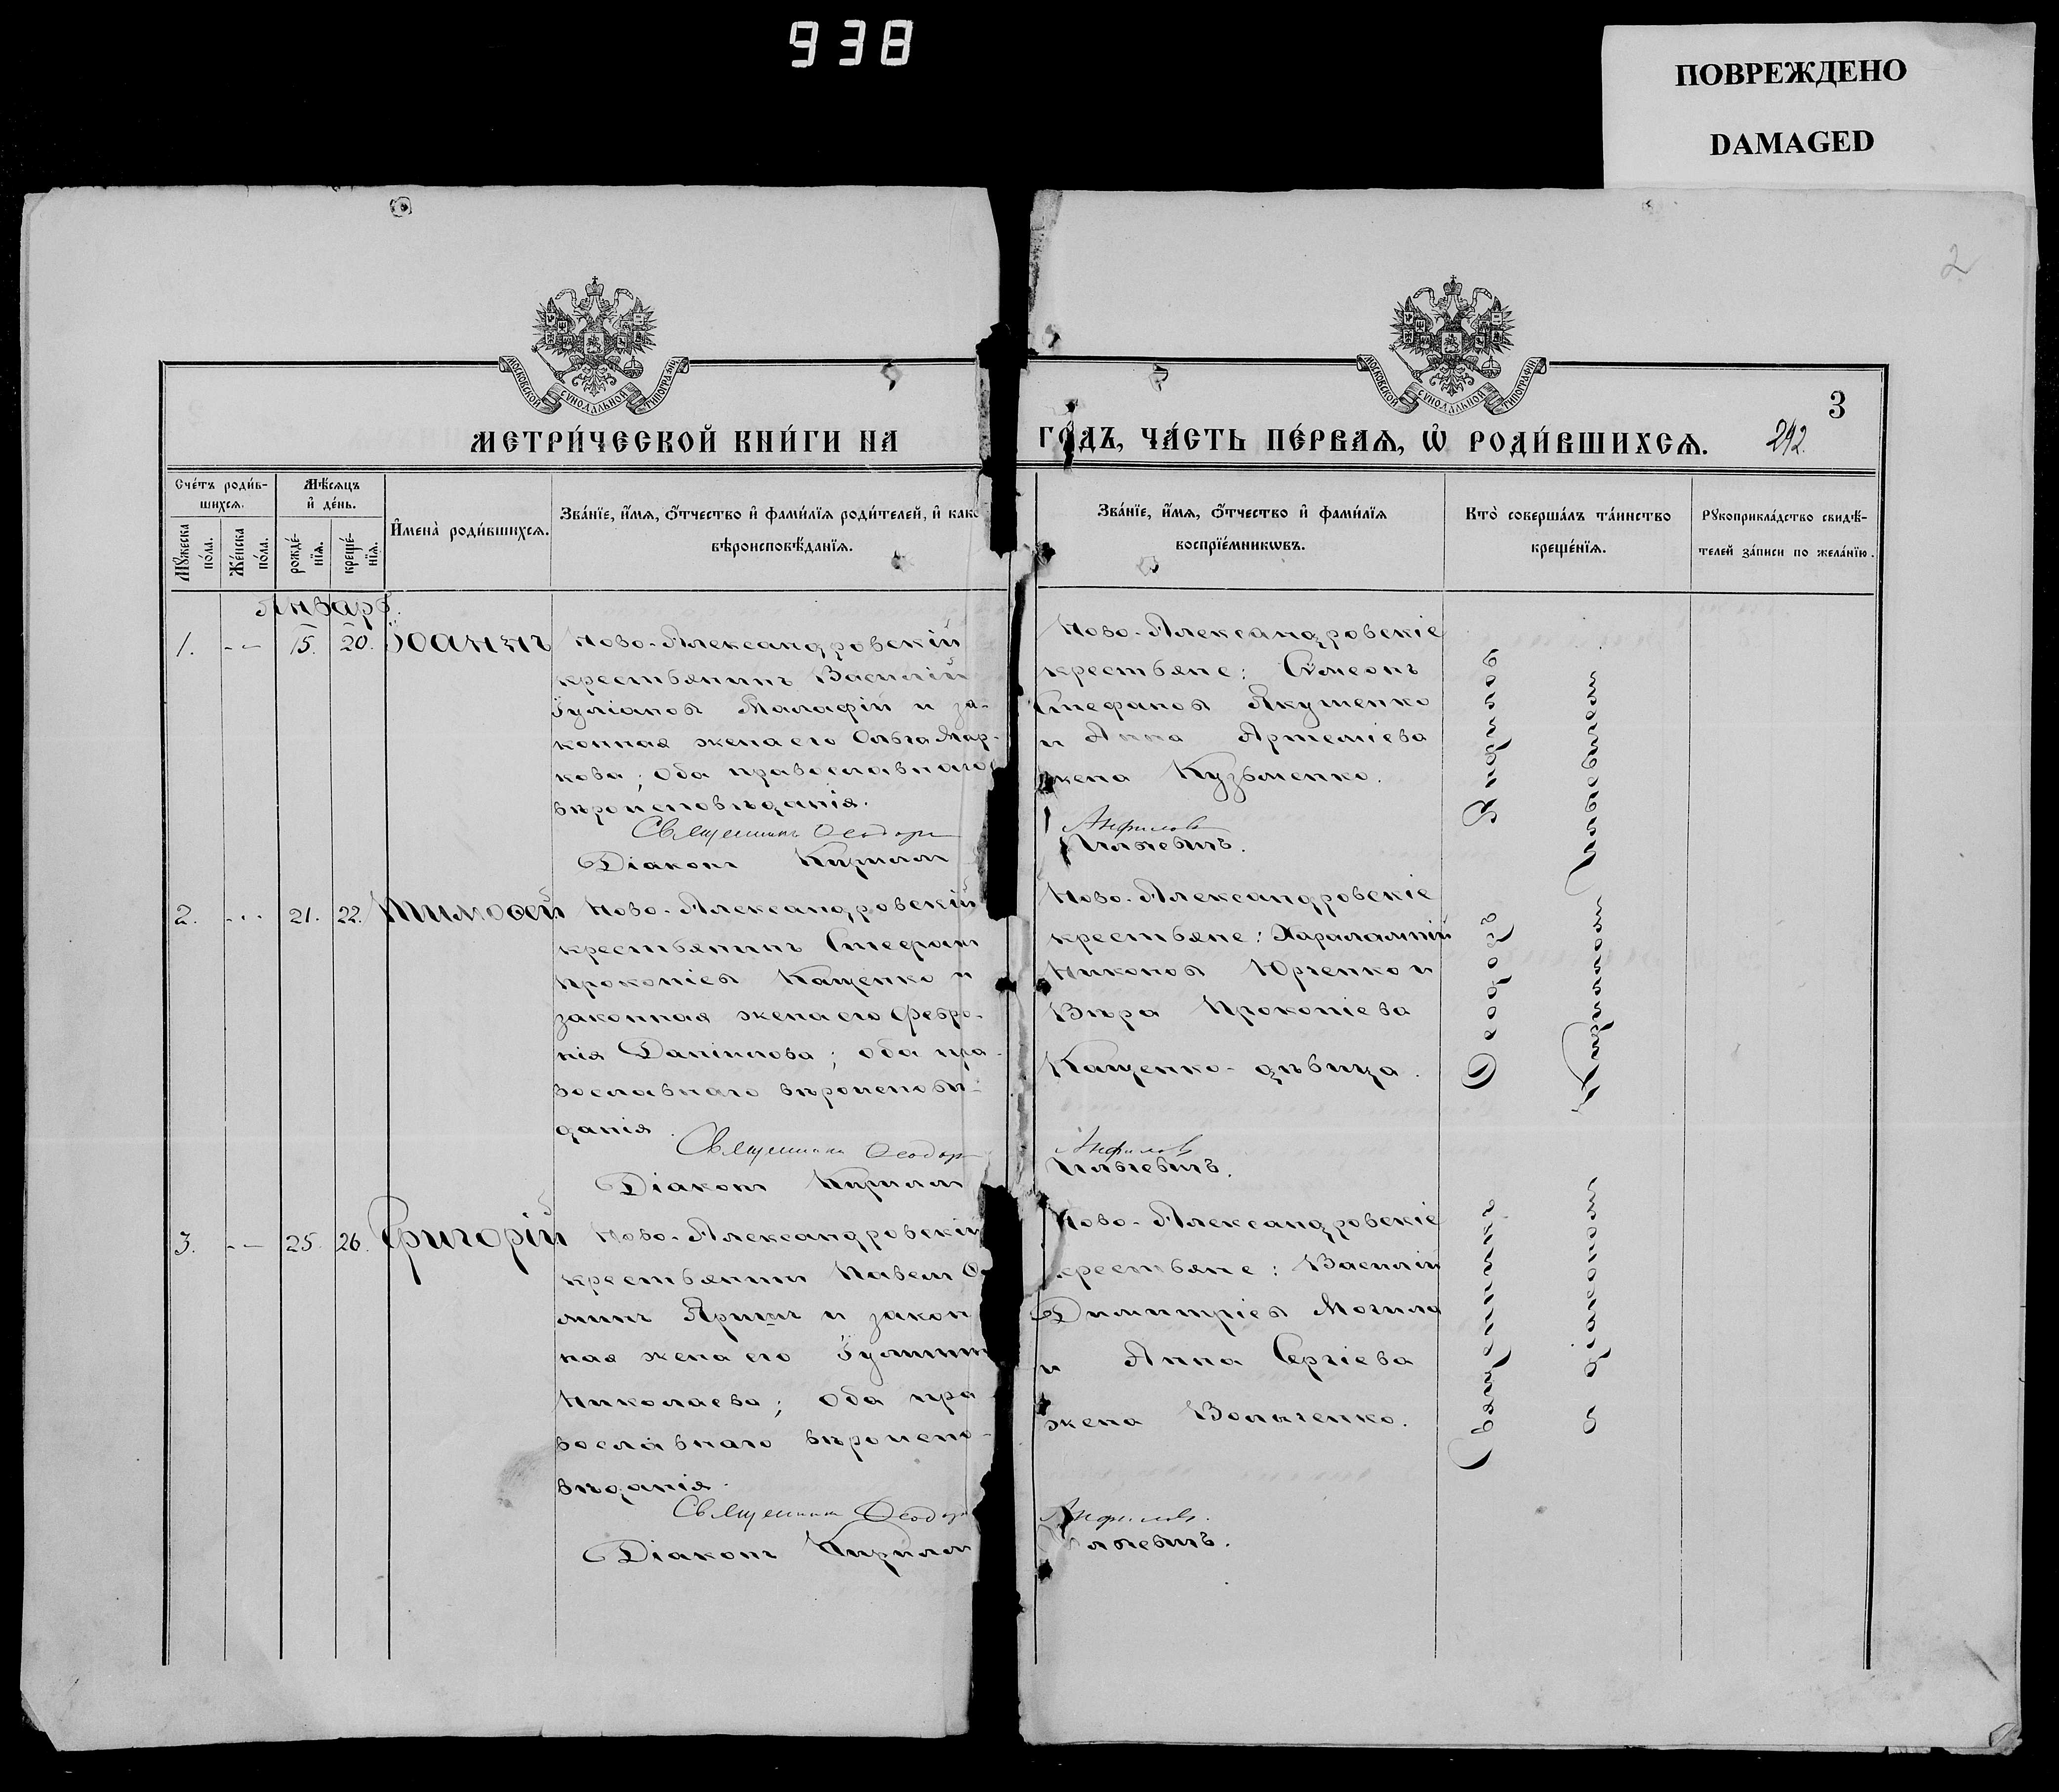 938
ПОВРЕЖДЕНО
DAMAGED
2
МОСКОВСКОЙ СѴНОДАЛЬНОЙ ТИПОГРАФІИ
МОСКОВСКОЙ СѴНОДАЛЬНОЙ ТИПОГРАФІИ
3
МЕТРИ́ЧЕСКОЙ КНИ́ГИ НА
ГО́ДЪ, ЧА́СТЬ ПЕ́РВАѦ, Ѡ҆ РОДИ́ВШИХСѦ.
292.
Сче́тъ роди́в-
шихсѧ.
Мꙋ́жеска
по́ла.
Же́нска
по́ла.
Мѣ́сѧцъ
и҆ де́нь.
рожде́-
нїѧ.
креще́-
нїѧ.
И҆мена̀ роди́вшихсѧ.
Зва́нїе, и҆́мѧ, ѻ҆́тчество и҆ фами́лїѧ роди́телей, и҆ како
вѣроисповѣ́данїѧ.
Зва́нїе, и҆́мѧ, ѻ҆́тчество и҆ фами́лїѧ
воспрїе́мникѡвъ.
Кто̀ соверша́лъ та́инство
креще́нїѧ.
Рꙋкоприкла́дство свидѣ́-
телей за́писи по жела́нїю.
Январь.
1. -- 15. 20. Іоаннъ
Ново-Александровскій
крестьянинъ Василій
Іуліановъ Малафій и за-
конная жена его Ольга Мар-
кова; оба православнаго
вѣроисповѣданія.
Священникъ Ѳеодоръ
Діаконъ Кириллъ
Ново-Александровскіе
крестьяне: Сѵмеонъ
Стефановъ Якушенко
и Анна Артеміева
жена Кузьменко.
Анфиловъ
Ильяевичъ.
2. --- 21. 22. Тимоѳей
Ново-Александровскій
крестьянинъ Стефанъ
Прокопіевъ Кащенко и
законная жена его Февро-
нія Даніилова; оба пра-
вославнаго вѣроисповѣ-
данія.
Священникъ Ѳеодоръ
Діаконъ Кириллъ
Ново-Александровскіе
крестьяне: Харалампій
Никоновъ Юрченко и
Вѣра Прокопіева
Кащенко-дѣвица.
Анфиловъ
Ильяевичъ.
3. -- 25. 26. Григорій
Ново-Александровскій
крестьянинъ Павелъ Ѳо
минъ Яришъ и закон
ная жена его
Николаева; оба пра
вославнаго вѣроиспо-
вѣданія.
Священникъ Ѳеодоръ
Діаконъ Кириллъ
Ново-Александровскіе
крестьяне: Василій
Димитріевъ Могила
и Анна Сергіева
жена Волыченко.
Анфиловъ.
Ильяевичъ.
Священникъ Ѳеодоръ Анфиловъ
съ діакономъ Кирилломъ Ильяевичемъ